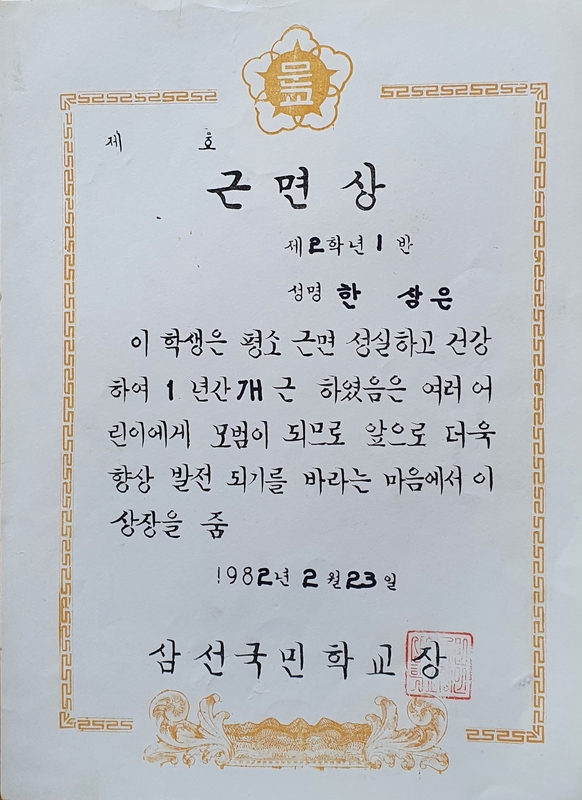 문교
제 호
근면상
제2학년1반
성명 한 삼은
이 학생은 평소 근면 성실하고 건강
하여 1 년간 개근 하였음은 여러 어
린이에게 모범이 되므로 앞으로 더욱
향상 발전 되기를 바라는 마음에서 이
상장을 줌
1982년 2월 23일
삼선국민학교장